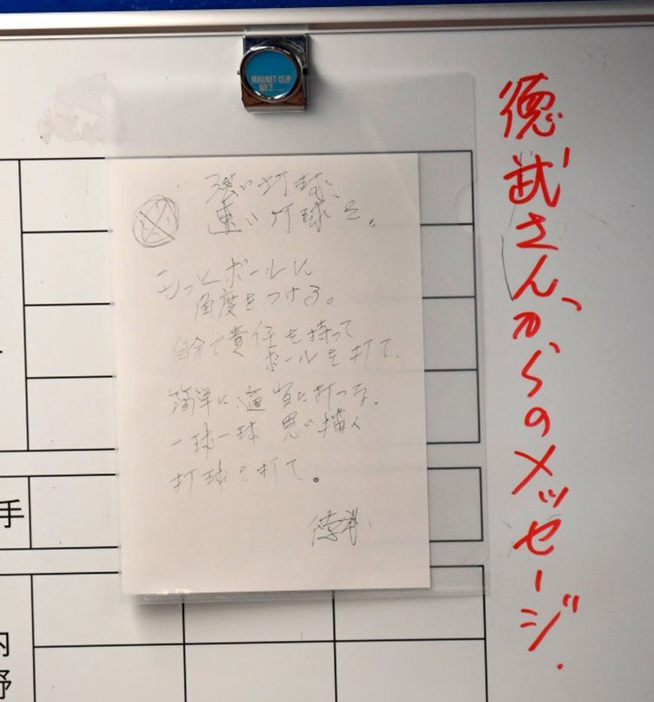 MAGNET CLIP
強い打球、
速い打球を。
もっとボールに
角度をつける。
自分で責任を持って
ボールを打て。
簡単に、適当に打つな。
一球一球 思い描く
打球を打て。
徳武さんからのメッセージ.
手
内
野